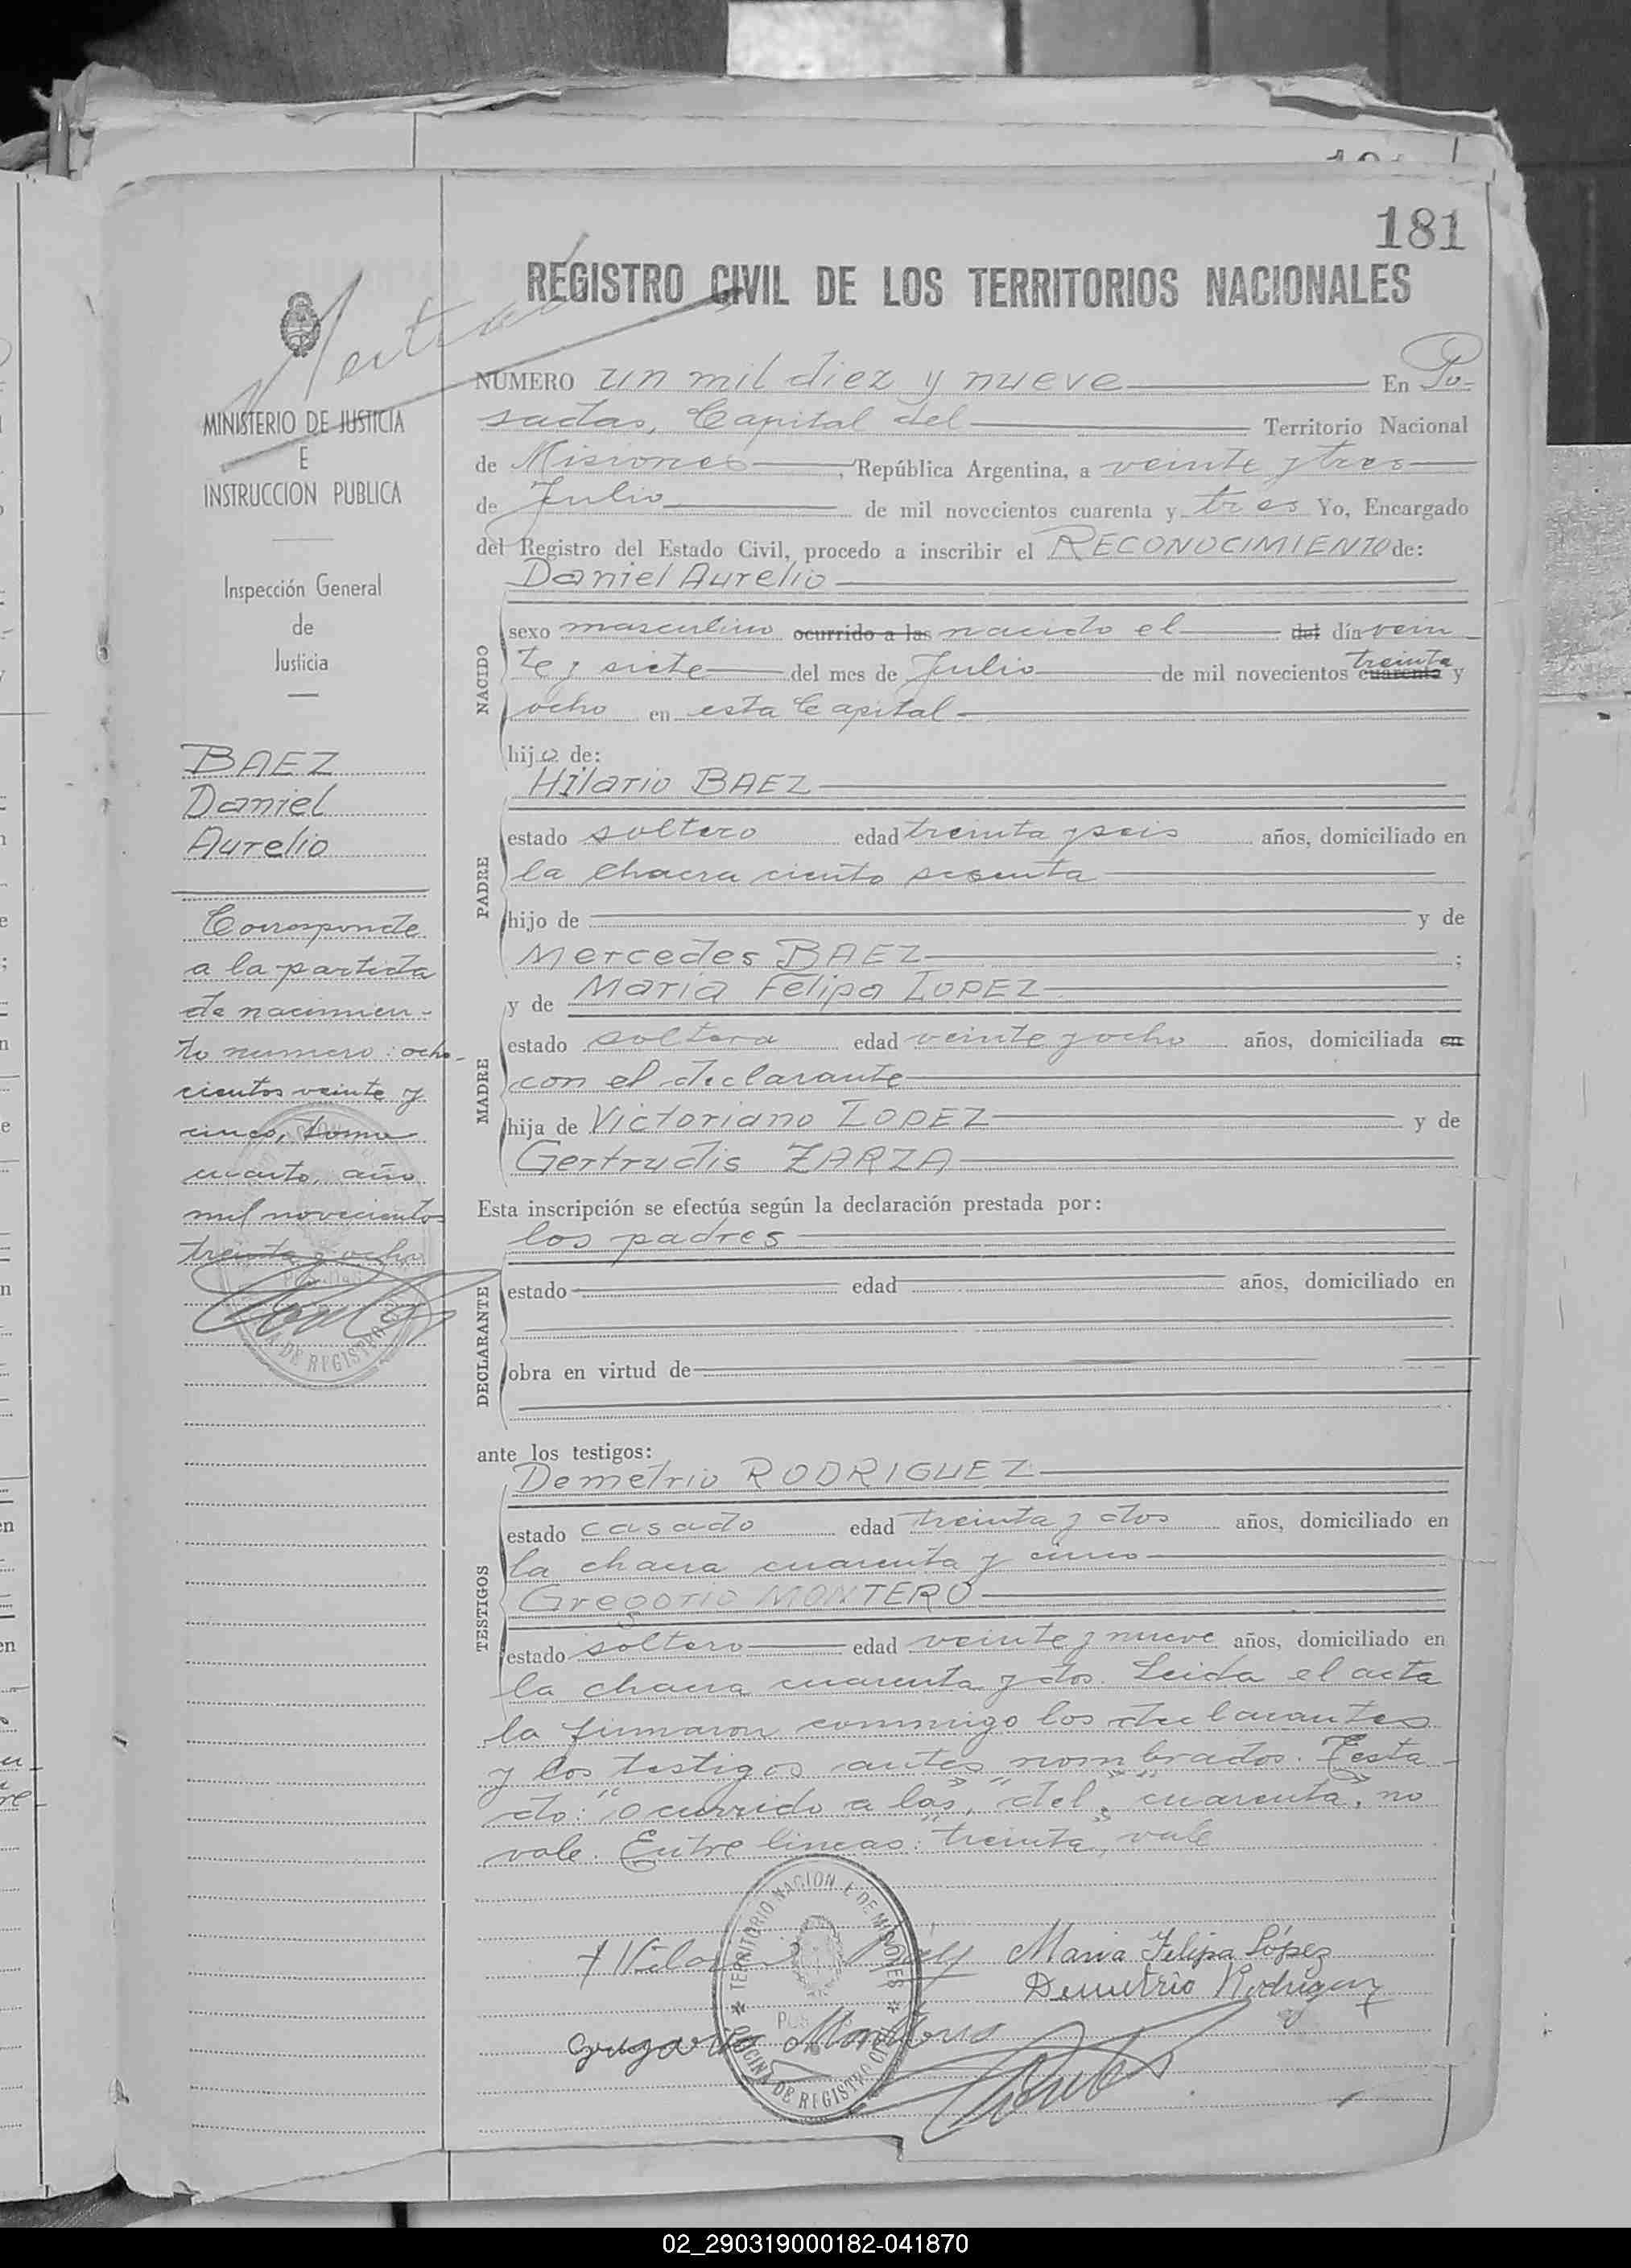 181
REGISTRO CIVIL DE LOS TERRITORIOS NACIONALES
MINISTERIO DE JUSTICIA
E
INSTRUCCION PUBLICA
Inspección General
de
Justicia
BAEZ
Daniel
Aurelio
Corresponde
a la partida
de nacimien-
to numero: ocho-
cientos veinte y
cinco, tomo
cuarto, año
mil novecientos
treinta y ocho
NUMERO un mil diez y nueve En Po-
sadas, Capital del Territorio Nacional
de Misiones, República Argentina, a veinte y tres
de Julio de mil novecientos cuarenta y tres Yo, Encargado
del Registro del Estado Civil, procedo a inscribir el RECONOCIMIENTO de:
Daniel Aurelio
NACIDO
sexo masculino ocurrido a las nacido el del día vein
te y siete del mes de Julio de mil novecientos cuarenta treinta y
ocho en esta Capital
hijo de:
Hilario BAEZ
PADRE
estado soltero edad treinta y seis años, domiciliado en
la chacra ciento sesenta
hijo de y de
Mercedes BAEZ ;
y de Maria Felipa LOPEZ
MADRE
estado soltera edad veinte y ocho años, domiciliada en
con el declarante
hija de Victoriano LOPEZ y de
Gertrudis ZARZA
Esta inscripción se efectúa según la declaración prestada por:
los padres
DECLARANTE
estado edad años, domiciliado en
obra en virtud de
ante los testigos:
Demetrio RODRIGUEZ
TESTIGOS
estado casado edad treinta y dos años, domiciliado en
la chacra cuarenta y cinco
Gregorio MONTERO
estado soltero edad veinte y nueve años, domiciliado en
la chacra cuarenta y dos. Leida el acta
la firmaron conmigo los declarantes
y los testigos antes nombrados. Testa-
do: "ocurrido a las", "del", "cuarenta", no
vale. Entre lineas: "treinta", vale
Maria Felipa López
Demetrio Rodriguez
Gregorio Montero
TERRITORIO NACIONAL DE MISIONES
OFICINA DE REGISTRO CIVIL
02_290319000182-041870